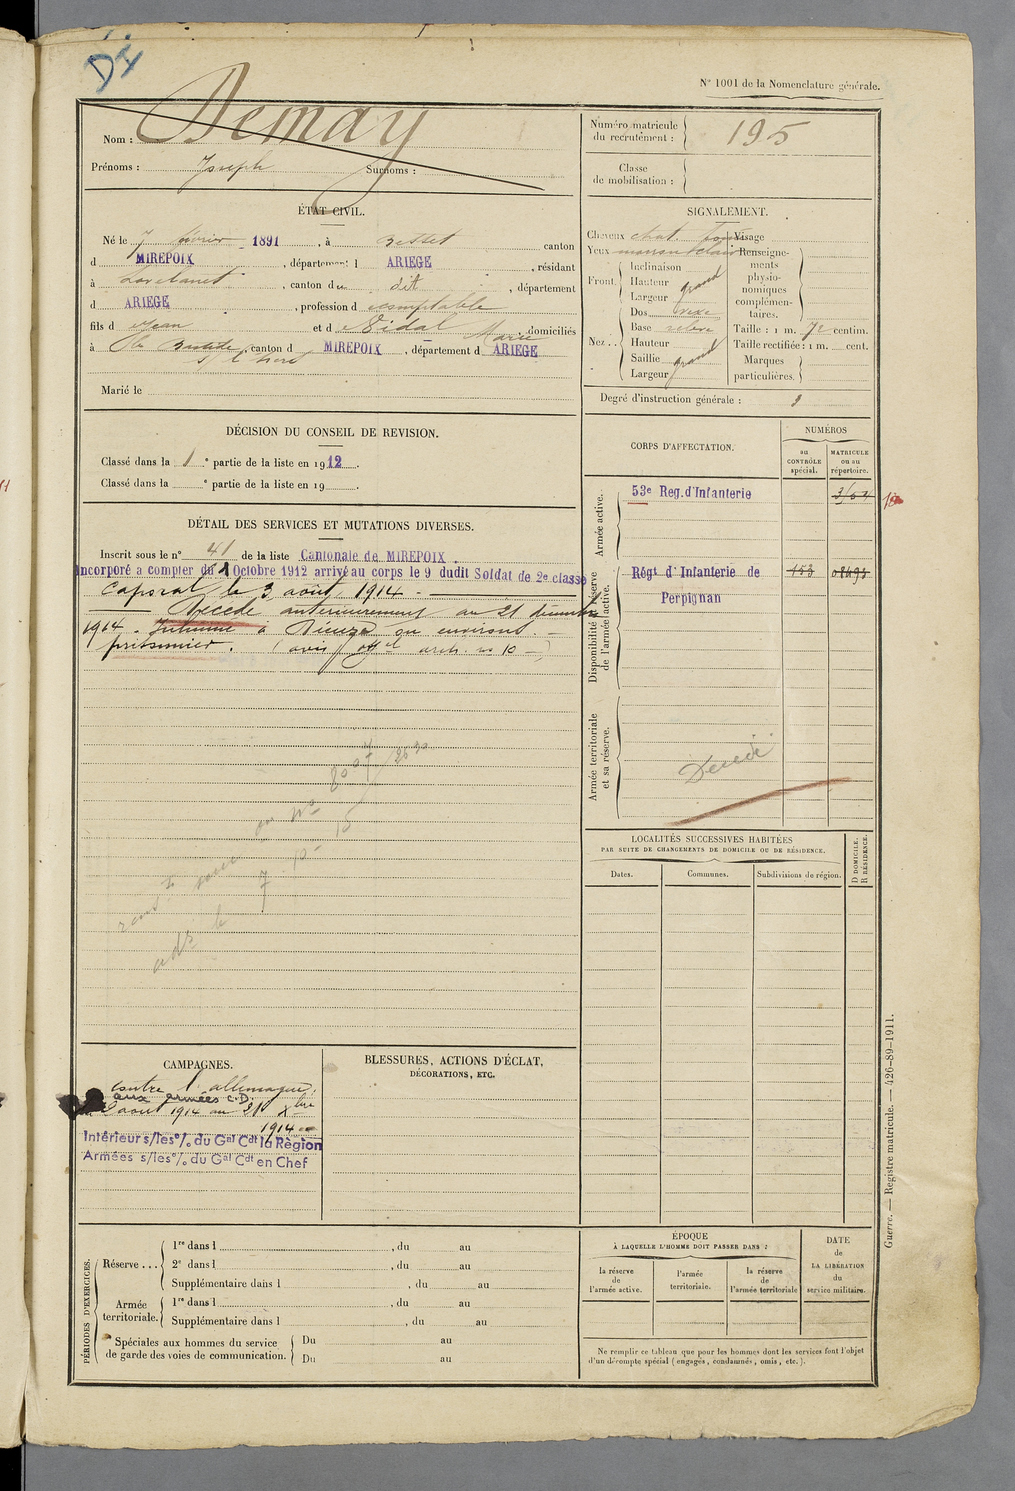 D4
N° 1001 de la Nomenclature générale.
Nom : Demay
Prénoms : Joseph Surnoms :
Numéro matricule du recrutement : 195
Classe de mobilisation :
ÉTAT CIVIL.
Né le 7 février 1891, à Besset canton
d MIREPOIX, département d ARIEGE, résidant
à Lavelanet, canton du dit, département
d ARIEGE, profession d comptable
fils d Jean et d Vidal Marie, domiciliés
à la Bastide, canton d MIREPOIX, département d ARIEGE
Marié le
SIGNALEMENT.
Cheveux chat. Visage
Yeux marron clair Renseignements physionomiques complémentaires.
Front. Inclinaison
Hauteur grand
Largeur
Nez.. Dos vexe
Base relevé
Hauteur
Saillie grand
Largeur
Taille : 1 m. 72 centim.
Taille rectifiée : 1 m. cent.
Marques particulières.
Degré d'instruction générale : 3
DÉCISION DU CONSEIL DE REVISION.
Classé dans la 1e partie de la liste en 1912.
Classé dans la e partie de la liste en 19 .
DÉTAIL DES SERVICES ET MUTATIONS DIVERSES.
Inscrit sous le n° 41 de la liste Cantonale de MIREPOIX.
Incorporé a compter du 1 Octobre 1912 arrivé au corps le 9 dudit Soldat de 2e classe
Caporal le 3 août 1914.
Décédé antérieurement au 21 décembre
1914. Inhumé à Dieuze ou environs.
prisonnier. (avis off el arch. n° 10 —)
CORPS D'AFFECTATION.
NUMÉROS
au CONTRÔLE spécial.
MATRICULE ou au répertoire.
Armée active.
53e Reg. d'Infanterie
Disponibilité et réserve de l'armée active.
Régt d'Infanterie de 153
Perpignan
Armée territoriale et sa réserve.
Décédé
LOCALITÉS SUCCESSIVES HABITÉES
PAR SUITE DE CHANGEMENTS DE DOMICILE OU DE RÉSIDENCE.
Dates. Communes. Subdivisions de région. D DOMICILE. R RÉSIDENCE.
CAMPAGNES.
Contre l'allemagne.
aux armées C.D.
du 2 août 1914 au 21 Xbre
1914
Intérieur s/les o/o du Gal Cdt la Région
Armées s/les o/o du Gal Cdt en Chef
BLESSURES, ACTIONS D'ÉCLAT,
DÉCORATIONS, ETC.
PÉRIODES D'EXERCICES.
Réserve... 1re dans l , du au
2e dans l , du au
Supplémentaire dans l , du au
Armée territoriale. 1re dans l , du au
Supplémentaire dans l , du au
Spéciales aux hommes du service de garde des voies de communication. Du au
Du au
ÉPOQUE
À LAQUELLE L'HOMME DOIT PASSER DANS :
la réserve de l'armée active.
l'armée territoriale.
la réserve de l'armée territoriale
DATE de LA LIBÉRATION du service militaire.
Ne remplir ce tableau que pour les hommes dont les services font l'objet
d'un décompte spécial (engagés, condamnés, omis, etc.).
Guerre. — Registre matricule. — 426-89-1911.